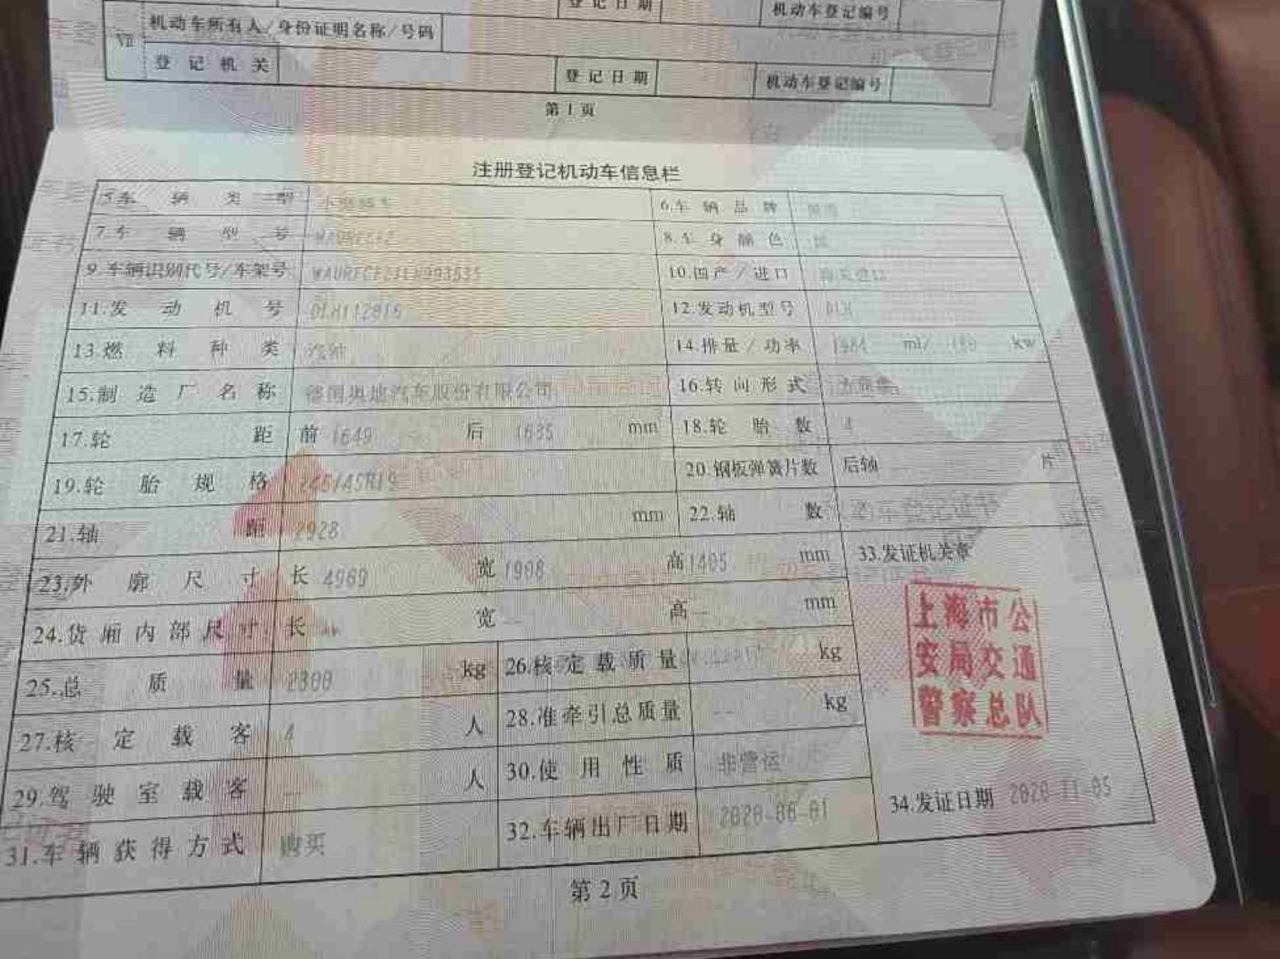 登记日期 机动车登记编号
VII 机动车所有人/身份证明名称/号码
登记机关 登记日期 机动车登记编号
第1页
注册登记机动车信息栏
5.车辆类型 小型轿车 6.车辆品牌
7.车辆型号 8.车身颜色
9.车辆识别代号/车架号 10.国产/进口 海关进口
11.发动机号 12.发动机型号 DLH
13.燃料种类 汽油 14.排量/功率 1984 ml/ kw
15.制造厂名称 德国奥地汽车股份有限公司 16.转向形式 方向盘
17.轮距 前 1649 后 1635 mm 18.轮胎数 4
19.轮胎规格 245/45R19 20.钢板弹簧片数 后轴 片
21.轴距 2928 mm 22.轴数
23.外廓尺寸 长 4969 宽 1908 高 1405 mm 33.发证机关章
24.货厢内部尺寸 长 -- 宽 -- 高 -- mm
上海市公
安局交通
警察总队
25.总质量 2300 kg 26.核定载质量 kg
27.核定载客 4 人 28.准牵引总质量 -- kg
29.驾驶室载客 -- 人 30.使用性质 非营运
31.车辆获得方式 购买 32.车辆出厂日期 2020-06-01 34.发证日期 2020-11-05
第2页